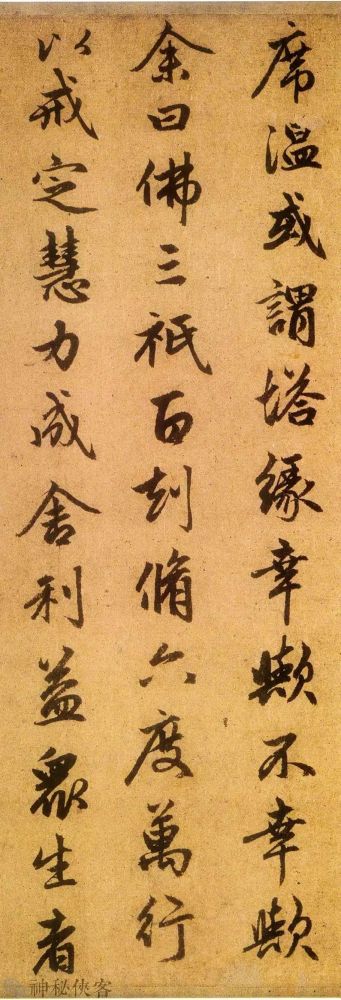 席溫或謂塔緣幸歟不幸歟
余曰佛三祇百刧脩六度萬行
以戒定慧力成舍利益衆生者
神秘俠客